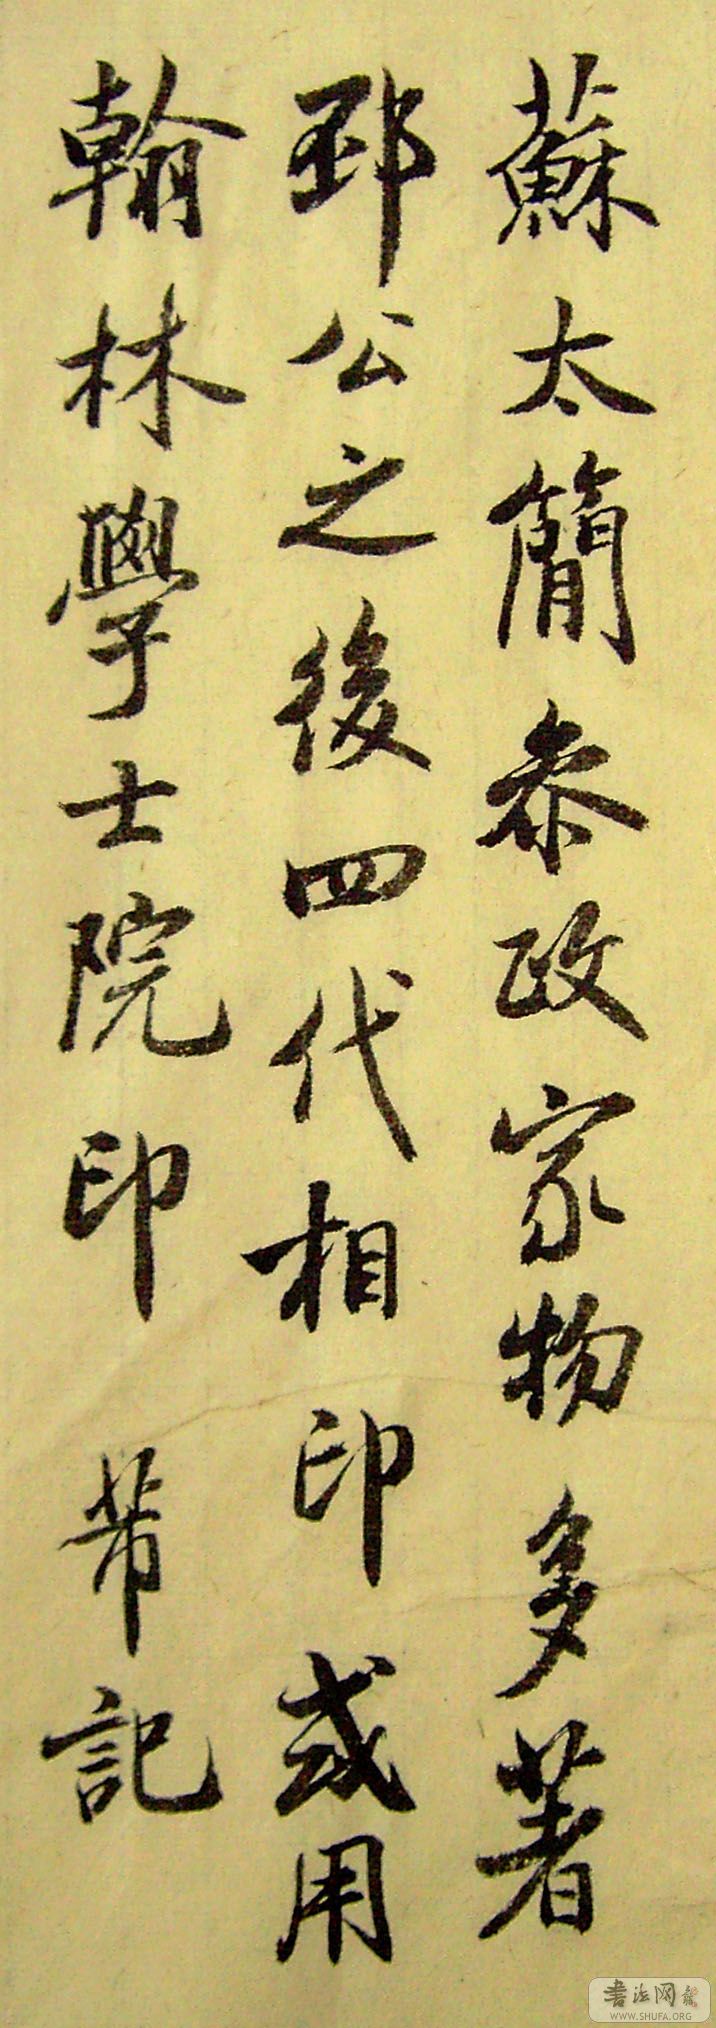 蘇太簡叅政家物多著
邳公之後四代相印或用
翰林學士院印 芾記
書法网
WWW.SHUFA.ORG